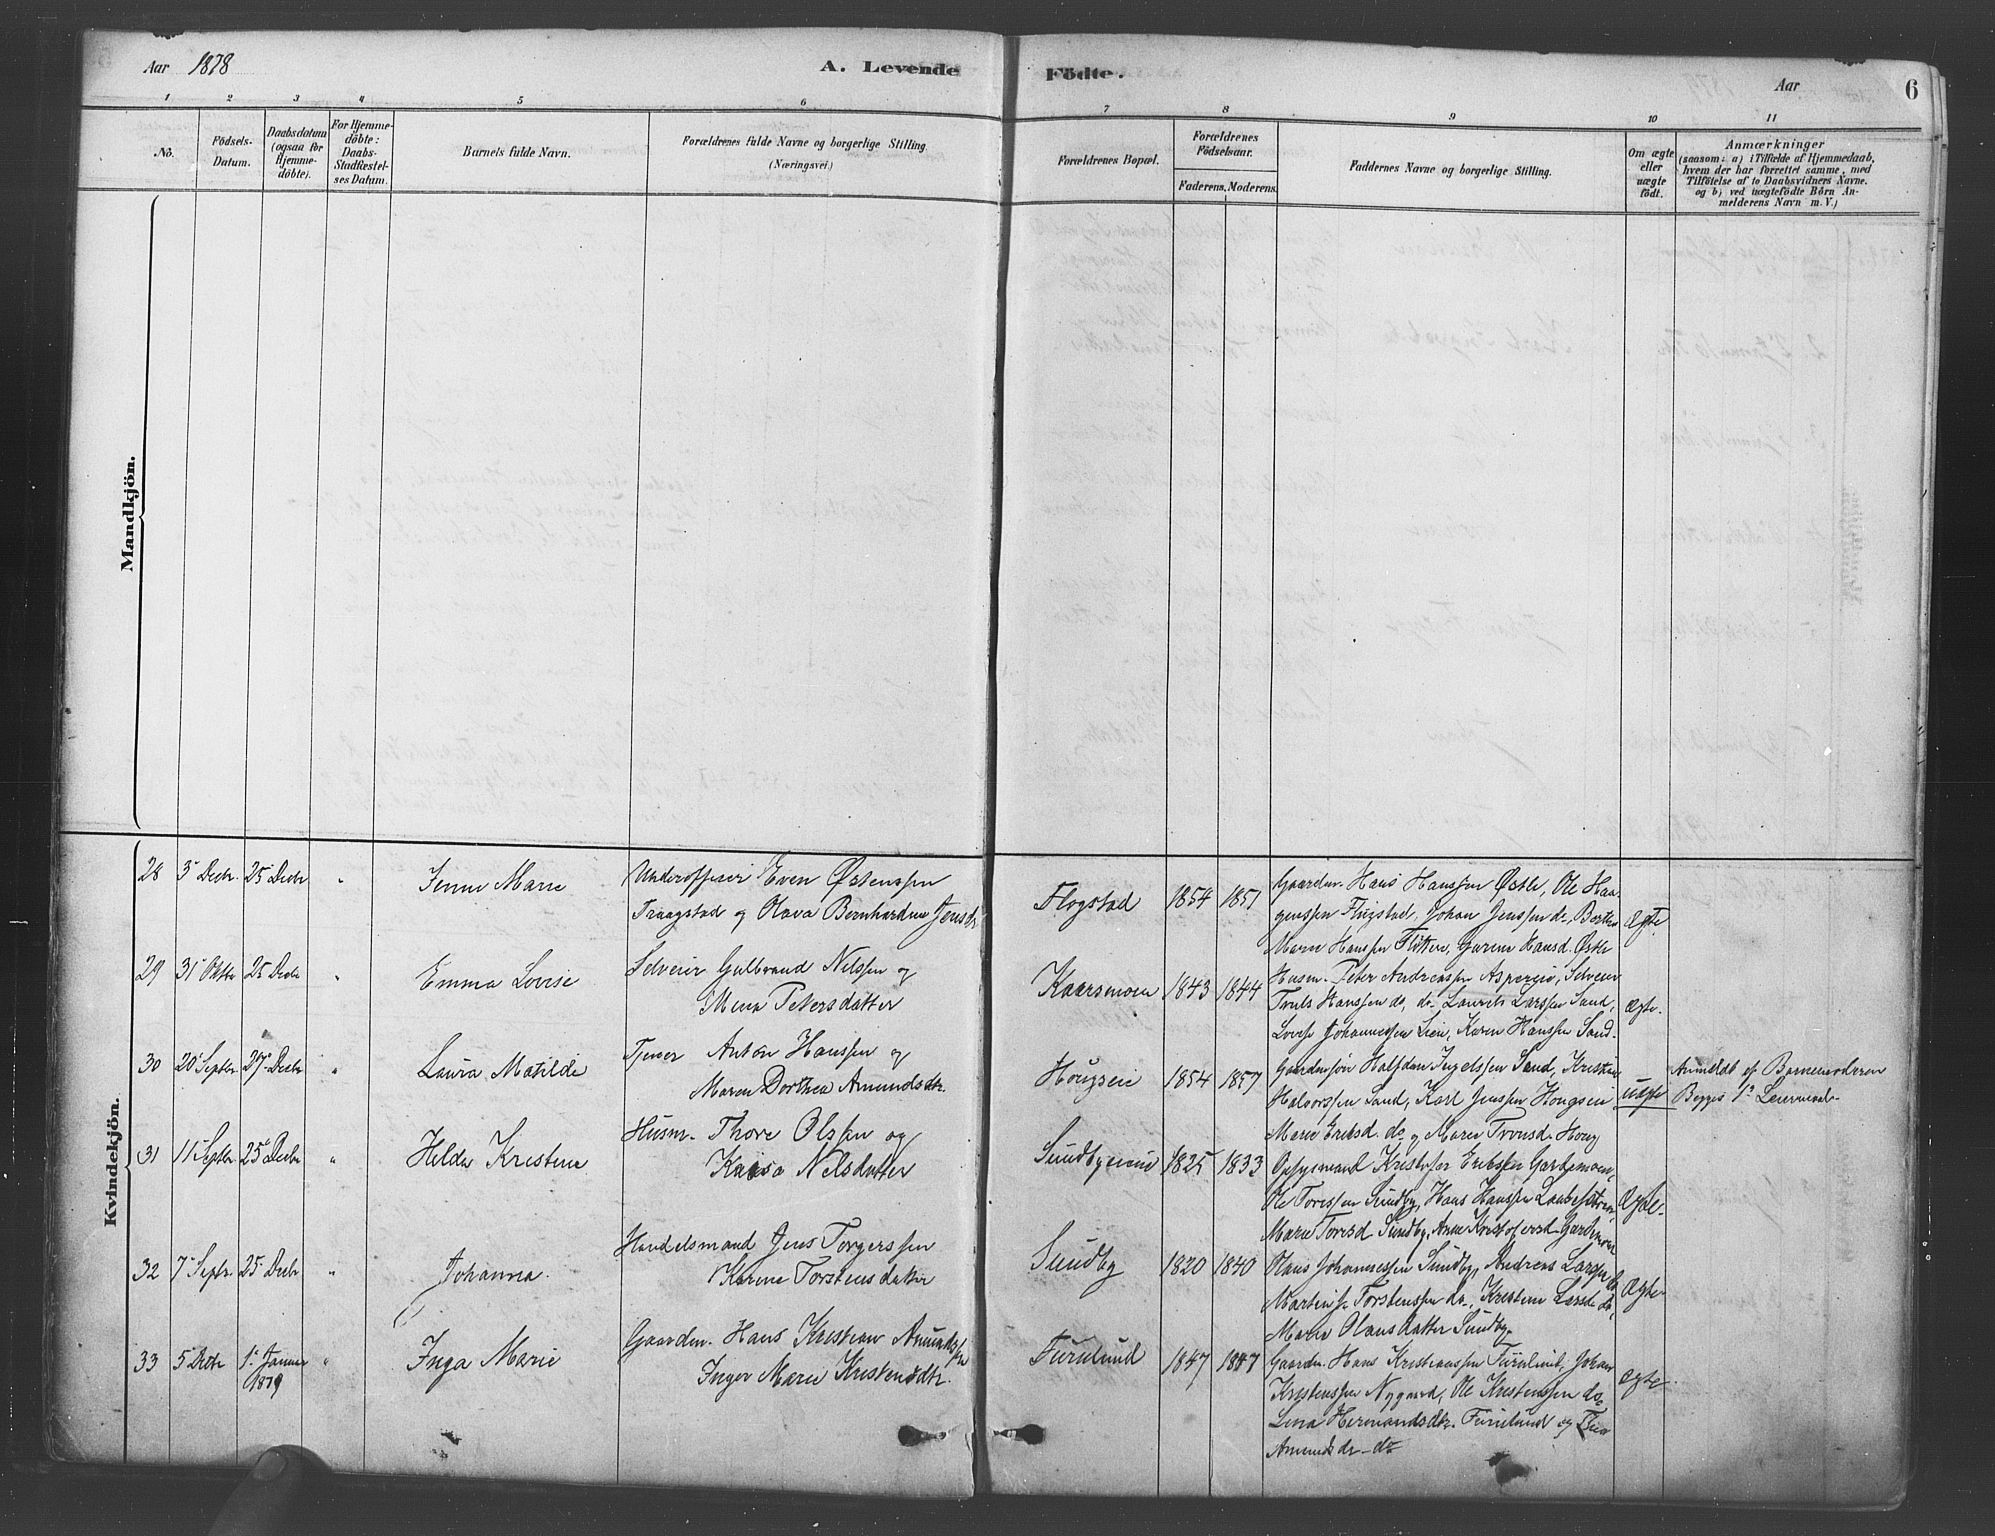 Aar 1878
A. Levende Födte.
Aar
6
1 2 3 4 5 6 7 8 9 10 11
No.
Födsels-Datum.
Daabsdatum (ogsaa for Hjemmedöbte).
For Hjemmedöbte: Daabs-Stadfæstelses Datum.
Barnets fulde Navn.
Forældrenes fulde Navne og borgerlige Stilling. (Næringsvei.)
Forældrenes Bopæl.
Forældrenes Födselsaar.
Faderens. Moderens.
Faddernes Navne og borgerlige Stilling.
Om ægte eller uægte födt.
Anmærkninger
(saasom: a) i Tilfælde af Hjemmedaab,
hvem der har forrettet samme, med
Tilföielse af to Daabsvidners Navne.
og b) ved uægtefödte Börn An-
melderens Navn m. V.)
Mandkjön.
Kvindekjön.
28 3 Decbr. 25 Decbr "
Jenne Marie
Underofficer Even Østenssen
Traagstad og Olava Bernhardine Jensdtr
Flogstad 1854 1851
Gaardm. Hans Hanssen Østle, Ole Haa-
genssen Flugstad, Johan Jenssen do, Berthe
Marie Hanssen Flatten, Gurine Hansd. Østle
Ægte
29 31 Oktbr 25 Decbr "
Emma Lovise
Selveier Gulbrand Nilssen og
Mina Petersdatter
Kaarsmoen 1843 1844
Husm. Peter Andreassen Aspergjø, Selveier
Truls Hanssen do, do. Laurits Larssen Sand,
Lovise Johannessen Lien, Karen Hanssen Sand.
Ægte.
30 20 Septbr 27 Decbr "
Laura Matilde
Tjener Anton Hanssen og
Maren Dorthea Amundsdtr.
Hougseie 1854 1857
Gaardmsøn Halfdan Ingelssen Sand, Kristian
Halvorssen Sand, Karl Jenssen Hougseie
Marie Eriksd. do og Maren Tronsd. Houg
uægte
Anmeldt af Barnemoderen
Begges 1ste Leiermaal.
31 11 Septbr 25 Decbr "
Helda Kristine
Husm. Thore Olssen og
Kaisa Nelsdatter
Sundbyeie 1825 1833
Opsynsmand Kristofer Erikssen Gardemoen,
Ole Toressen Sundby, Hans Hanssen
Marie Toresd. Sundby, Anne Kristofersd. Gardemoen
Ægte.
32 7 Septr. 25 Decbr "
Johanna.
Handelsmand Jens Torgerssen
Karine Torstensdatter
Sundby 1820 1840
Olaus Johannessen Sundby, Andreas Larssen do,
Martin Torstenssen do, Kristine Larsd. do,
Marie Olausdatter Sundby.
Ægte
33 5 Decbr 1. Januar 1879 "
Inga Marie
Gaardm. Hans Kristian Amundssen
Inger Marie Kristensdtr.
Furulund 1847 1847
Gaardm. Hans Kristianssen Furulund, Johan
Kristenssen Nygaard, Ole Kristenssen do,
Lina Hermandsdtr. Furulund og
Amundsdr. do
Ægte